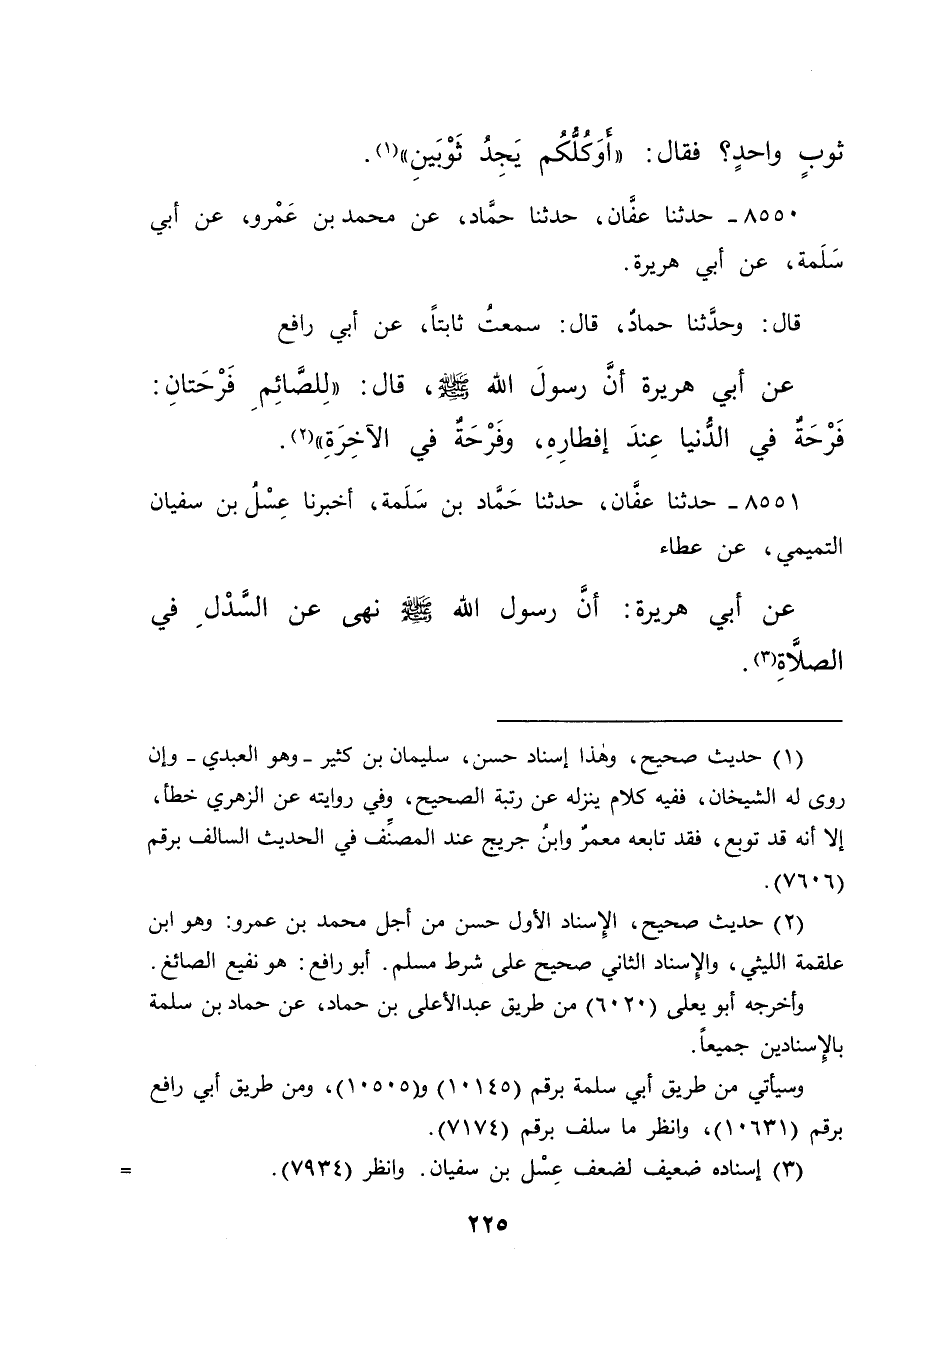 ثوبٍ واحدٍ؟ فقال: «أَوَكُلُّكُم يَجِدُ ثَوْبَينِ»(١).
٨٥٥٠ ـ حدثنا عفَّان، حدثنا حمَّاد، عن محمد بن عَمْرو، عن أبي
سَلَمة، عن أبي هريرة.
قال: وحدَّثنا حمادٌ، قال: سمعتُ ثابتاً، عن أبي رافع
عن أبي هريرة أنَّ رسولَ الله ﷺ، قال: «لِلصَّائِمِ فَرْحَتانِ:
فَرْحَةٌ في الدُّنيا عِندَ إفطارِهِ، وفَرْحَةٌ في الآخِرَةِ»(٢).
٨٥٥١ ـ حدثنا عفَّان، حدثنا حَمَّاد بن سَلَمة، أخبرنا عِسْلُ بن سفيان
التميمي، عن عطاء
عن أبي هريرة: أنَّ رسول الله ﷺ نهى عن السَّدْلِ في
الصلَّاةِ(٣).
(١) حديث صحيح، وهٰذا إسناد حسن، سليمان بن كثير ـ وهو العبدي ـ وإن
روى له الشيخان، ففيه كلام ينزله عن رتبة الصحيح، وفي روايته عن الزهري خطأ،
إلا أنه قد توبع، فقد تابعه معمرٌ وابنُ جريج عند المصنِّف في الحديث السالف برقم
(٧٦٠٦).
(٢) حديث صحيح، الإسناد الأول حسن من أجل محمد بن عمرو: وهو ابن
علقمة الليثي، والإسناد الثاني صحيح على شرط مسلم. أبو رافع: هو نفيع الصائغ.
وأخرجه أبو يعلى (٦٠٢٠) من طريق عبدالأعلى بن حماد، عن حماد بن سلمة
بالإسنادين جميعاً.
وسيأتي من طريق أبي سلمة برقم (١٠١٤٥) و(١٠٥٠٥)، ومن طريق أبي رافع
برقم (١٠٦٣١)، وانظر ما سلف برقم (٧١٧٤).
(٣) إسناده ضعيف لضعف عِسْل بن سفيان. وانظر (٧٩٣٤). =
٢٢٥